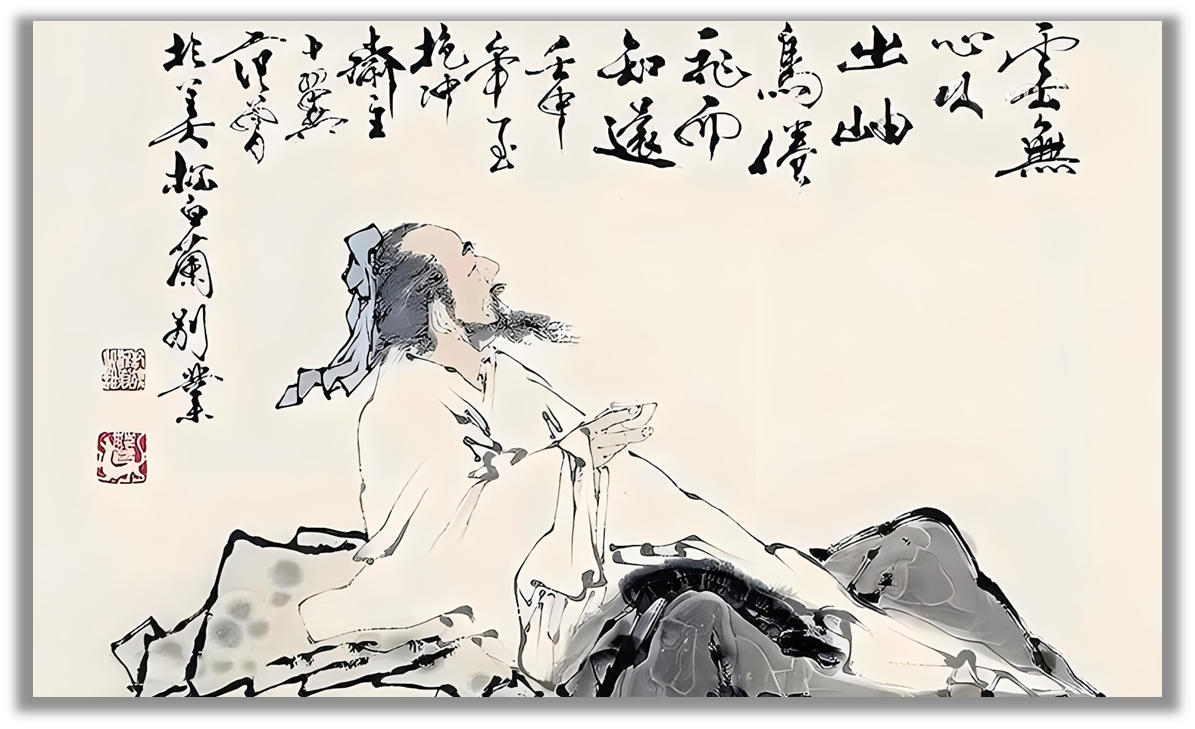 雲無
心以
出岫
鳥倦
飛而
知還
壬申
年至
抱冲
齋主
十翼
范曾
於美松白蘭別業